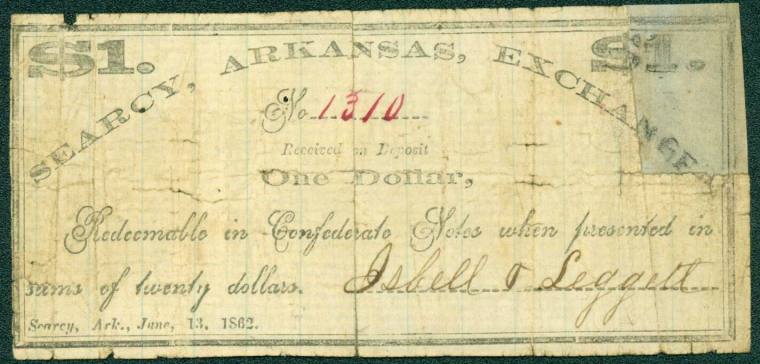 $1. $1.
SEARCY, ARKANSAS, EXCHANGE
No 1310
Received on Deposit
One Dollar,
Redeemable in Confederate Notes when presented in
sums of twenty dollars. Isbell & Leggett
Searcy, Ark., June, 13, 1862.